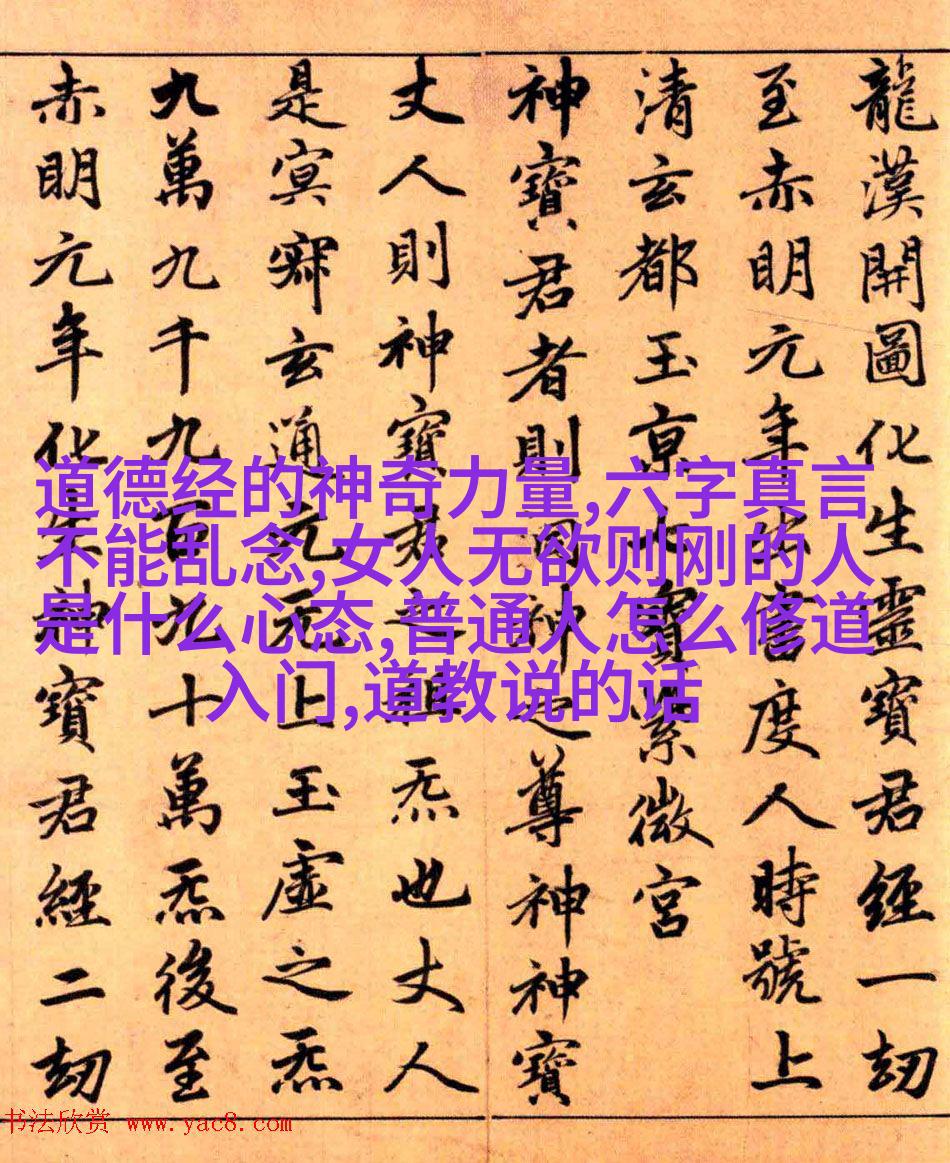 龍漢開圖化生靈寶君經一劫
至赤明元年出書度人時號上
清玄都玉京七寶紫微宮
神寶君者則洞神之尊神神寶
丈人則神寶祖炁也丈人
是冥寂玄通元无上玉虛之炁
九萬九千九百九十萬炁後至
赤明元年化生神寶君經二劫
道德经的神奇力量,六字真言
不能乱念,女人无欲则刚的人
是什么心态,普通人怎么修道
入门,道教说的话
书法欣赏 www.yac8.com